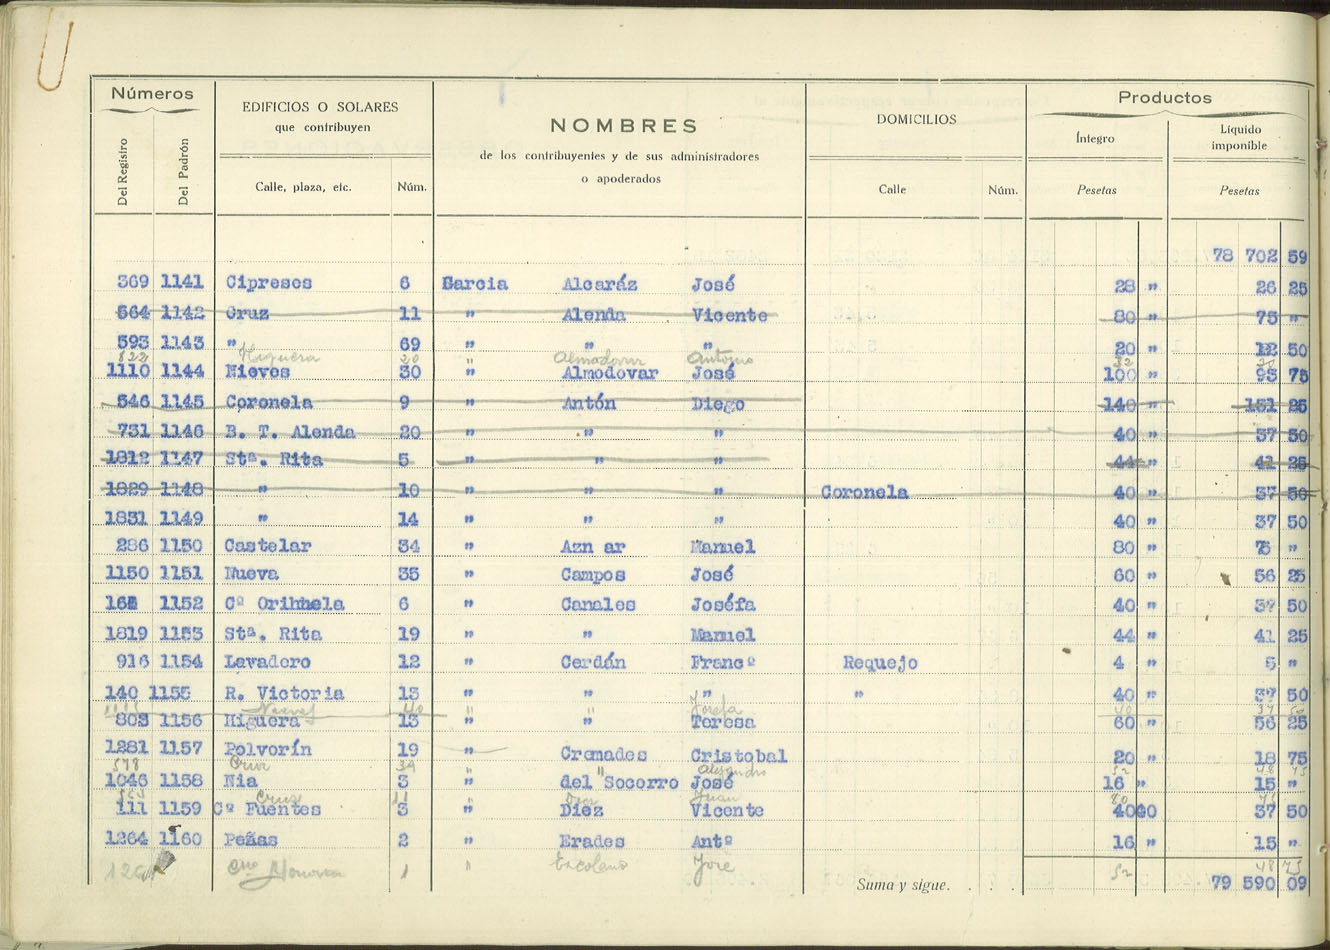 Números
EDIFICIOS O SOLARES
que contribuyen
NOMBRES
de los contribuyentes y de sus administradores
o apoderados
DOMICILIOS
Productos
Íntegro
Líquido
imponible
Del Registro
Del Padrón
Calle, plaza, etc.
Núm.
Calle
Núm.
Pesetas
Pesetas
78 702 59
369 1141 Cipreses 6 Garcia Alcaráz José 28 " 26 25
564 1142 Cruz 11 " Alenda Vicente 80 " 75 "
593 1143 " 69 " " " 20 " 12 50
822 Higuera 20 " Almodovar Antonio 32
1110 1144 Nieves 30 " Almodovar José 100 " 93 75
546 1145 Coronela 9 " Antón Diego 140 " 131 25
731 1146 B. T. Alenda 20 " " " 40 " 37 50
1812 1147 Stª. Rita 5 " " " 44 " 41 25
1829 1148 " 10 " " " Coronela 40 " 37 50
1831 1149 " 14 " " " 40 " 37 50
286 1150 Castelar 34 " Azn ar Manuel 80 " 75 "
1150 1151 Nueva 35 " Campos José 60 " 56 25
162 1152 Cº Orihuela 6 " Canales Joséfa 40 " 37 50
1819 1153 Stª. Rita 19 " " Manuel 44 " 41 25
916 1154 Lavadero 12 " Cerdán Francº Requejo 4 " 5 "
140 1155 R. Victoria 13 " " " " 40 " 37 50
Nieves 40 " " Josefa 40 37 50
803 1156 Higuera 13 " " Teresa 60 " 56 25
1281 1157 Polvorín 19 " Cremades Cristobal 20 " 18 75
578 Cruz 34 " " Alejandro 52 48 75
1046 1158 Nia 3 " del Socorro José 16 " 15 "
Cruz 11 " Diez Juan 80 75
111 1159 Cº Fuentes 3 " Diez Vicente 40 40 37 50
1264 1160 Peñas 2 " Erades Antº 16 " 15 "
Cno 1 " Escolano José 52 48 75
Suma y sigue. . . . 79 590 09